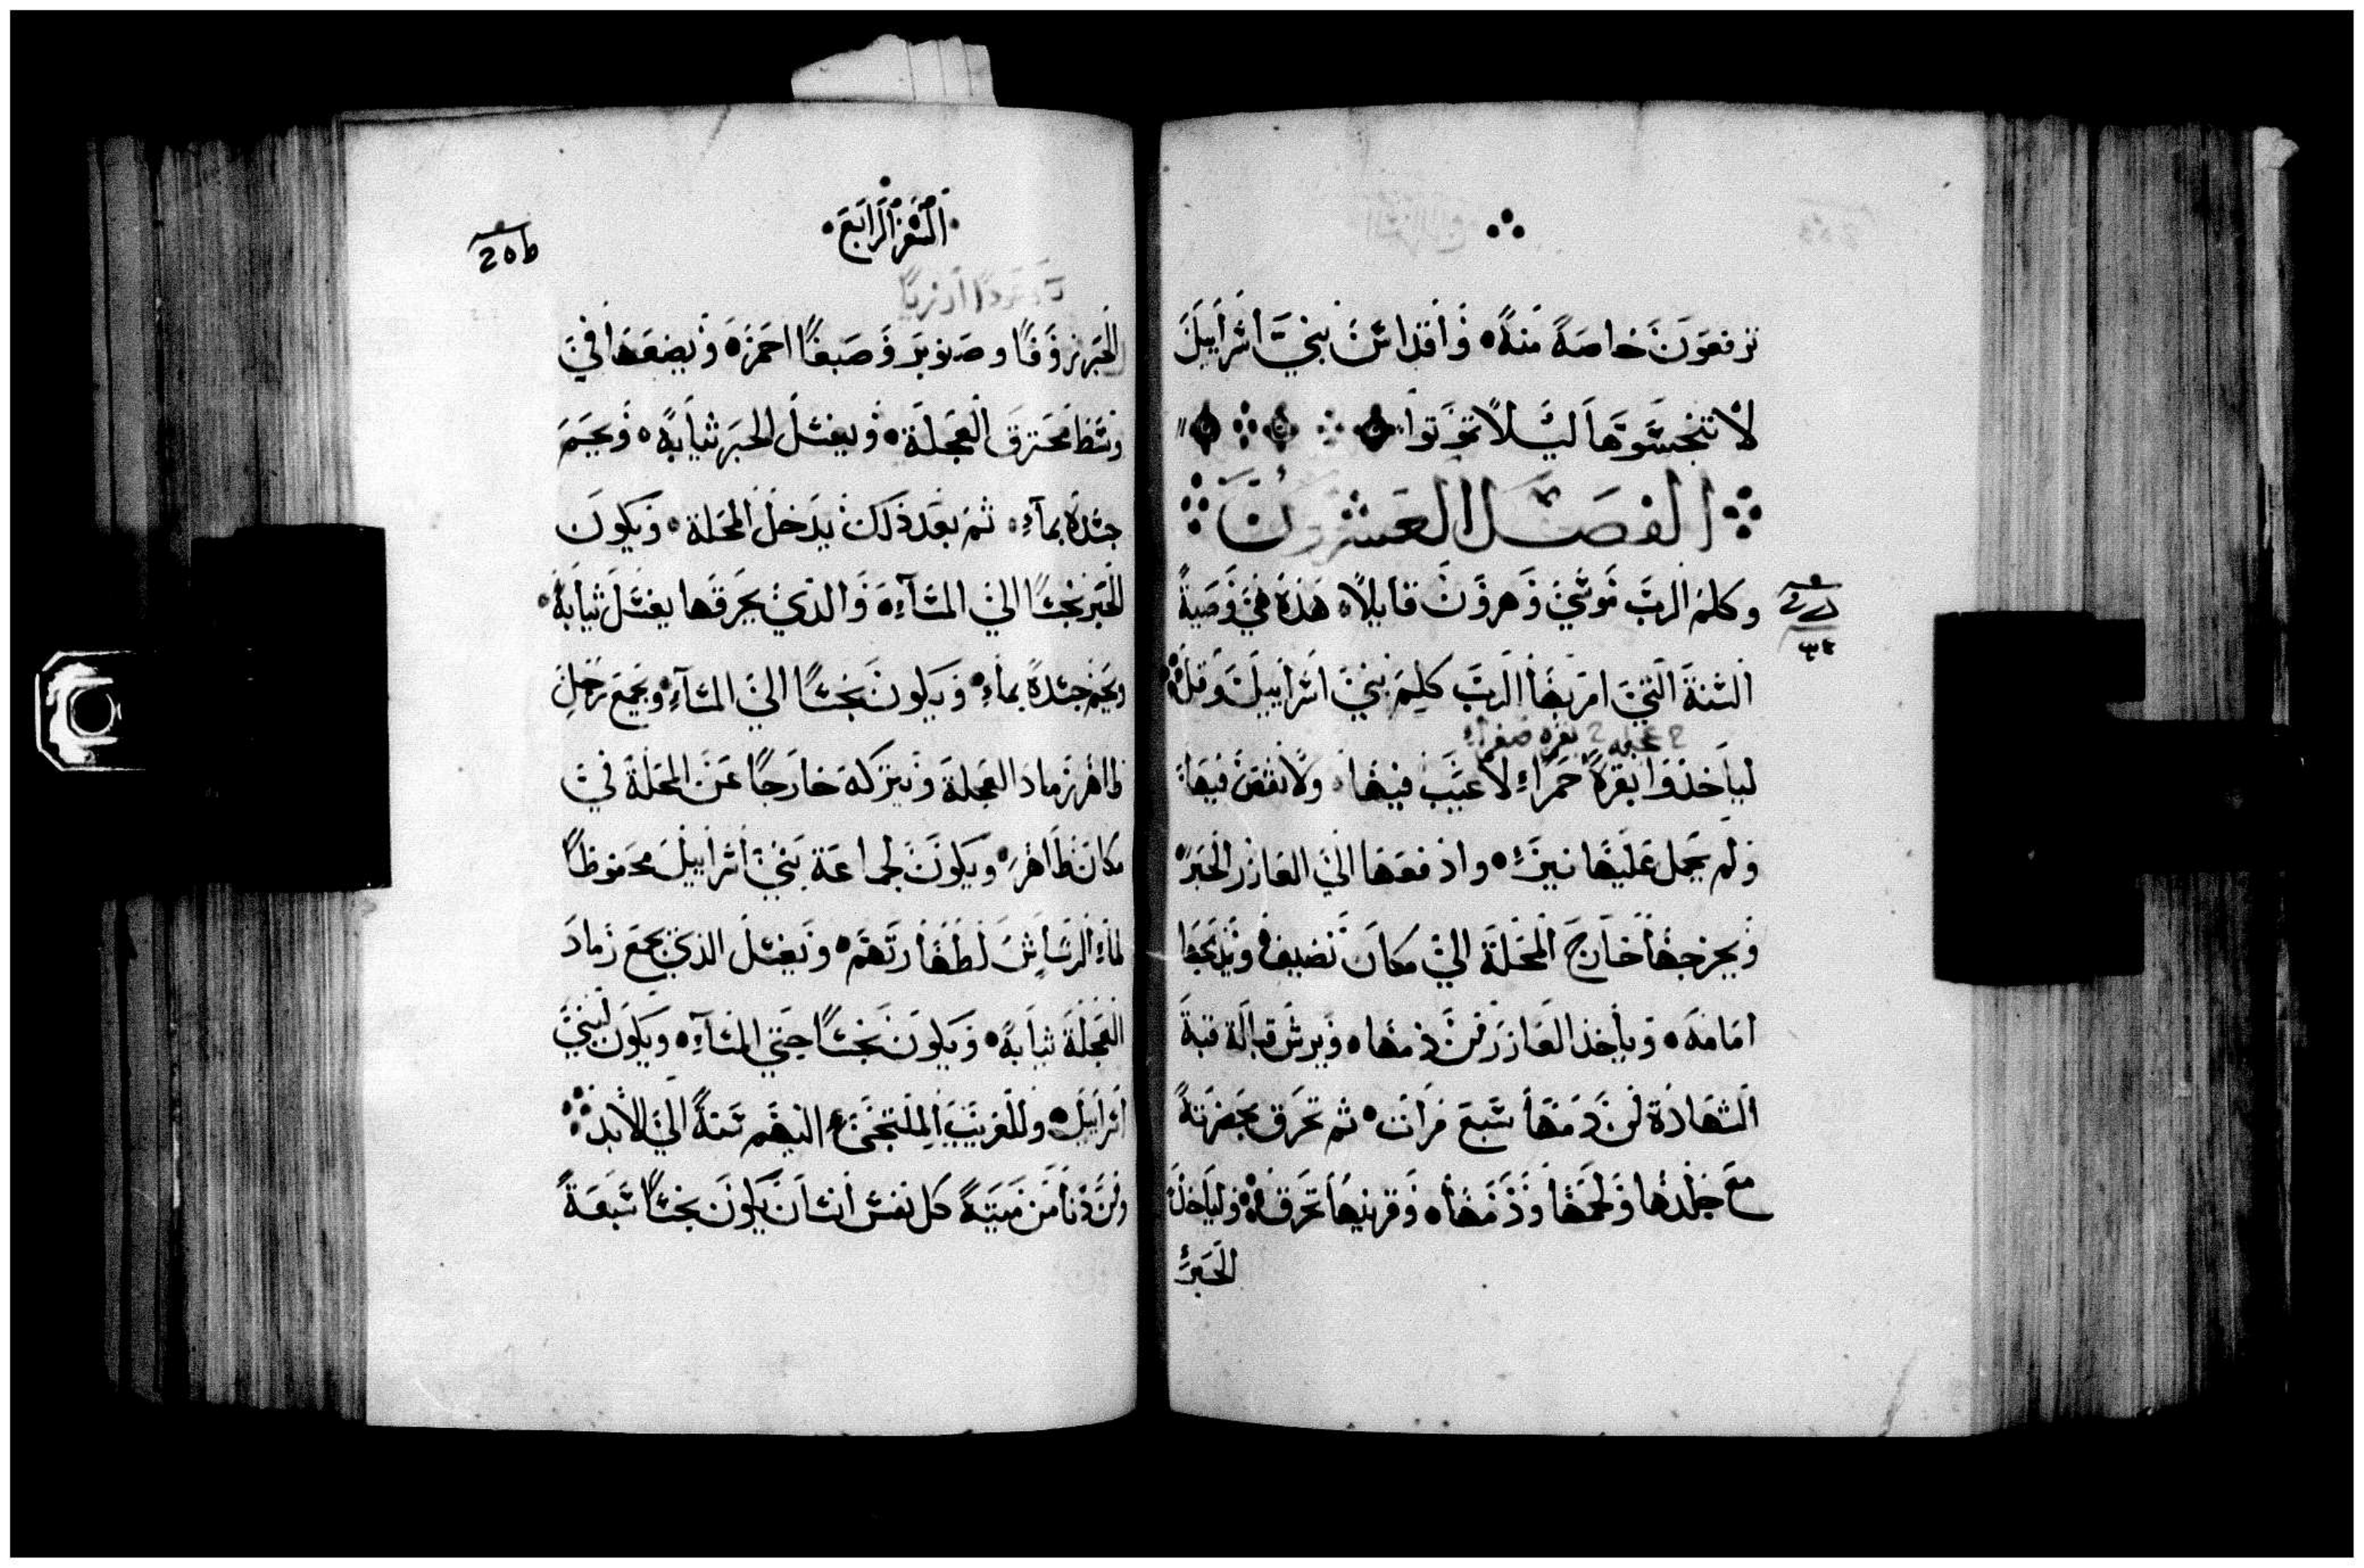 ترفعون خاصة منه وأقداس بني اسراييل
لا تنجسوها ليلا تموتوا
الفصل العشرون
وكلم الرب موسي وهرون قايلا هذه هي وصية
السنة التي امر بها الرب كلم بني اسراييل وقل
بقره صفرا
لياخذوا بقرة حمراء لا عيب فيها ولا نقص فيها
ولم يحمل عليها نير وادفعها الي العازر الحبر
ويخرجها خارج المحلة الي مكان نضيف ويذبحها
امامه وياخذ العازر من دمها ويرش قبالة قبة
الشهادة من دمها سبع مرات ثم تحرق بحضرته
مع جلدها ولحمها ودمها وفرنيها تحرق ولياخذ
الحبر
السفر الرابع
205
الحبر زوفا وصنوبر وصبغا احمر ويضعها في
وسط محترق العجلة ويغسل الحبر ثيابه ويحمم
جسده بماء ثم بعد ذلك يدخل المحلة ويكون
الحبر نجسا الي المساء والذي يحرقها يغسل ثيابه
ويحمم جسده بماء ويكون نجسا الي المساء ويجمع رجل
طاهر رماد العجلة ويتركه خارجا عن المحلة في
مكان طاهر ويكون لجماعة بني اسراييل محفوظا
لماء الرشاش لطهارتهم ويغسل الذي يجمع رماد
العجلة ثيابه ويكون نجسا حتي المساء ويكون لبني
اسراييل وللغريب الملتجي اليهم سنة الي الابد
ومن دنا من ميتة كل نفس انسان يكون نجسا سبعة